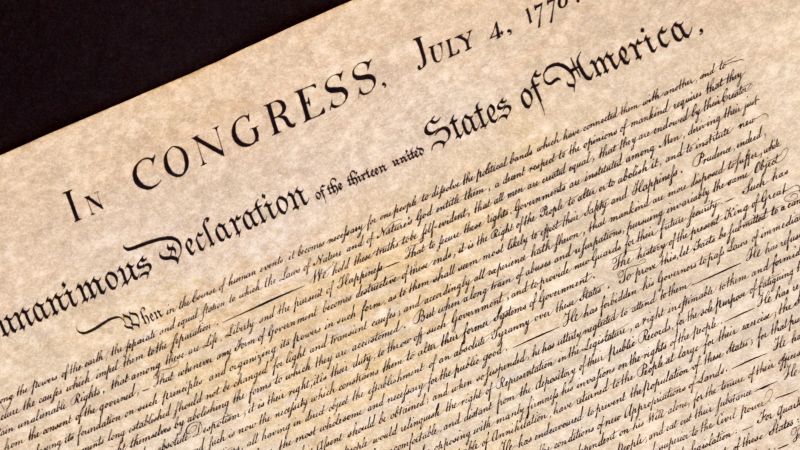 IN CONGRESS, JULY 4, 1776.
unanimous Declaration of the thirteen united States of America,
When in the Course of human events, it becomes necessary for one people to dissolve the political bands which have connected them with another, and to
among the powers of the earth, the separate and equal station to which the Laws of Nature and of Nature's God entitle them, a decent respect to the opinions of mankind requires that they
the causes which impel them to the separation. We hold these truths to be self-evident, that all men are created equal, that they are endowed by their Creator
unalienable Rights, that among these are Life, Liberty and the pursuit of Happiness.— That to secure these rights, Governments are instituted among Men, deriving their just
from the consent of the governed,— That whenever any Form of Government becomes destructive of these ends, it is the Right of the People to alter or to abolish it, and to institute new
laying its foundation on such principles and organizing its powers in such form, as to them shall seem most likely to effect their Safety and Happiness. Prudence, indeed
long established should not be changed for light and transient causes; and accordingly all experience hath shewn, that mankind are more disposed to suffer, while
themselves by abolishing the forms to which they are accustomed. But when a long train of abuses and usurpations, pursuing invariably the same Object
Despotism, it is their right, it is their duty, to throw off such Government, and to provide new Guards for their future security. Such has
such is now the necessity which constrains them to alter their former Systems of Government. The history of the present King of Great
all having in direct object the establishment of an absolute Tyranny over these States. To prove this, let Facts be submitted to a
the most wholesome and necessary for the public good. He has forbidden his Governors to pass Laws of immediate
Assent should be obtained; and when so suspended, he has utterly neglected to attend to them. He has refused
would relinquish the right of Representation in the Legislature, a right inestimable to them and
comfortable, and distant from the depository of their Public Records, for the sole purpose of fatiguing
opposing with manly firmness his invasions on the rights of the people. He has